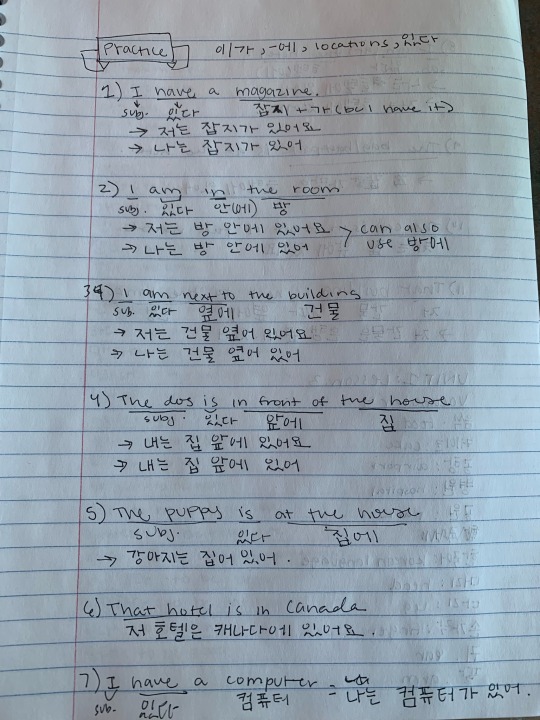 Practice 이/가, -에, locations, 있다
1) I have a magazine.
subj. 있다 잡지 + 가 (bc I have it)
→ 저는 잡지가 있어요
→ 나는 잡지가 있어
2) I am in the room
subj. 있다 안(에) 방
→ 저는 방 안에 있어요 > can also
→ 나는 방 안에 있어 use 방에
3) I am next to the building
subj. 있다 옆에 건물
→ 저는 건물 옆에 있어요
→ 나는 건물 옆에 있어
4) The dog is in front of the house
subj. 있다 앞에 집
→ 내는 집 앞에 있어요
→ 내는 집 앞에 있어
5) The puppy is at the house
subj. 있다 집에
→ 강아지는 집에 있어.
6) That hotel is in Canada
저 호텔은 캐나다에 있어요.
7) I have a computer = 나는 컴퓨터가 있어.
sub. 있다 컴퓨터